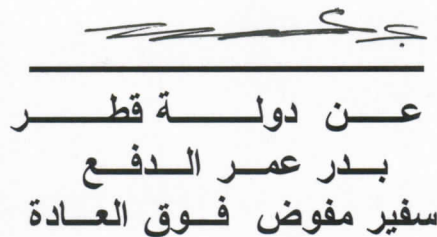 عن دولة قطر
بدر عمر الدفع
سفير مفوض فوق العادة